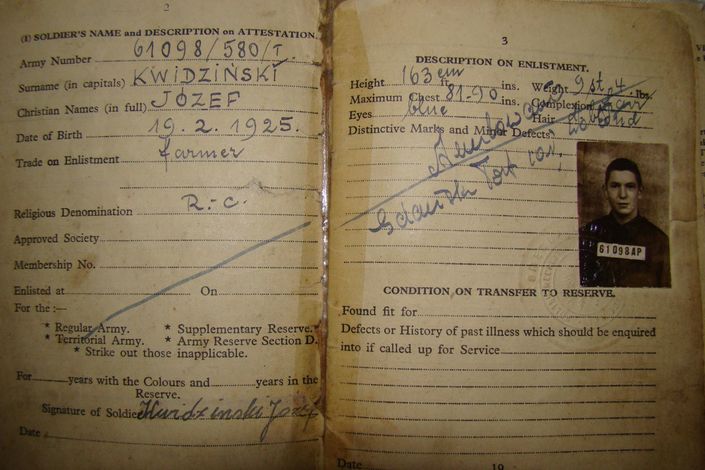 2
(1) SOLDIER'S NAME and DESCRIPTION on ATTESTATION.
Army Number 61098/580/T.
Surname (in capitals) KWIDZIŃSKI
Christian Names (in full) JÓZEF
Date of Birth 19. 2. 1925.
Trade on Enlistment farmer
Religious Denomination R.-C.
Approved Society
Membership No.
Enlisted at On
For the :—
* Regular Army. * Supplementary Reserve.
* Territorial Army. * Army Reserve Section D.
* Strike out those inapplicable.
For years with the Colours and years in the
Reserve.
Signature of Soldier Kwidzinski Józef
Date
3
DESCRIPTION ON ENLISTMENT.
Height 163 cm ft. ins. Weight 9 st. 4 lbs.
Maximum Chest 81-90 ins. Complexion
Eyes blue Hair blond
Distinctive Marks and Minor Defects
61098AP
CONDITION ON TRANSFER TO RESERVE.
Found fit for
Defects or History of past illness which should be enquired
into if called up for Service
Date 19